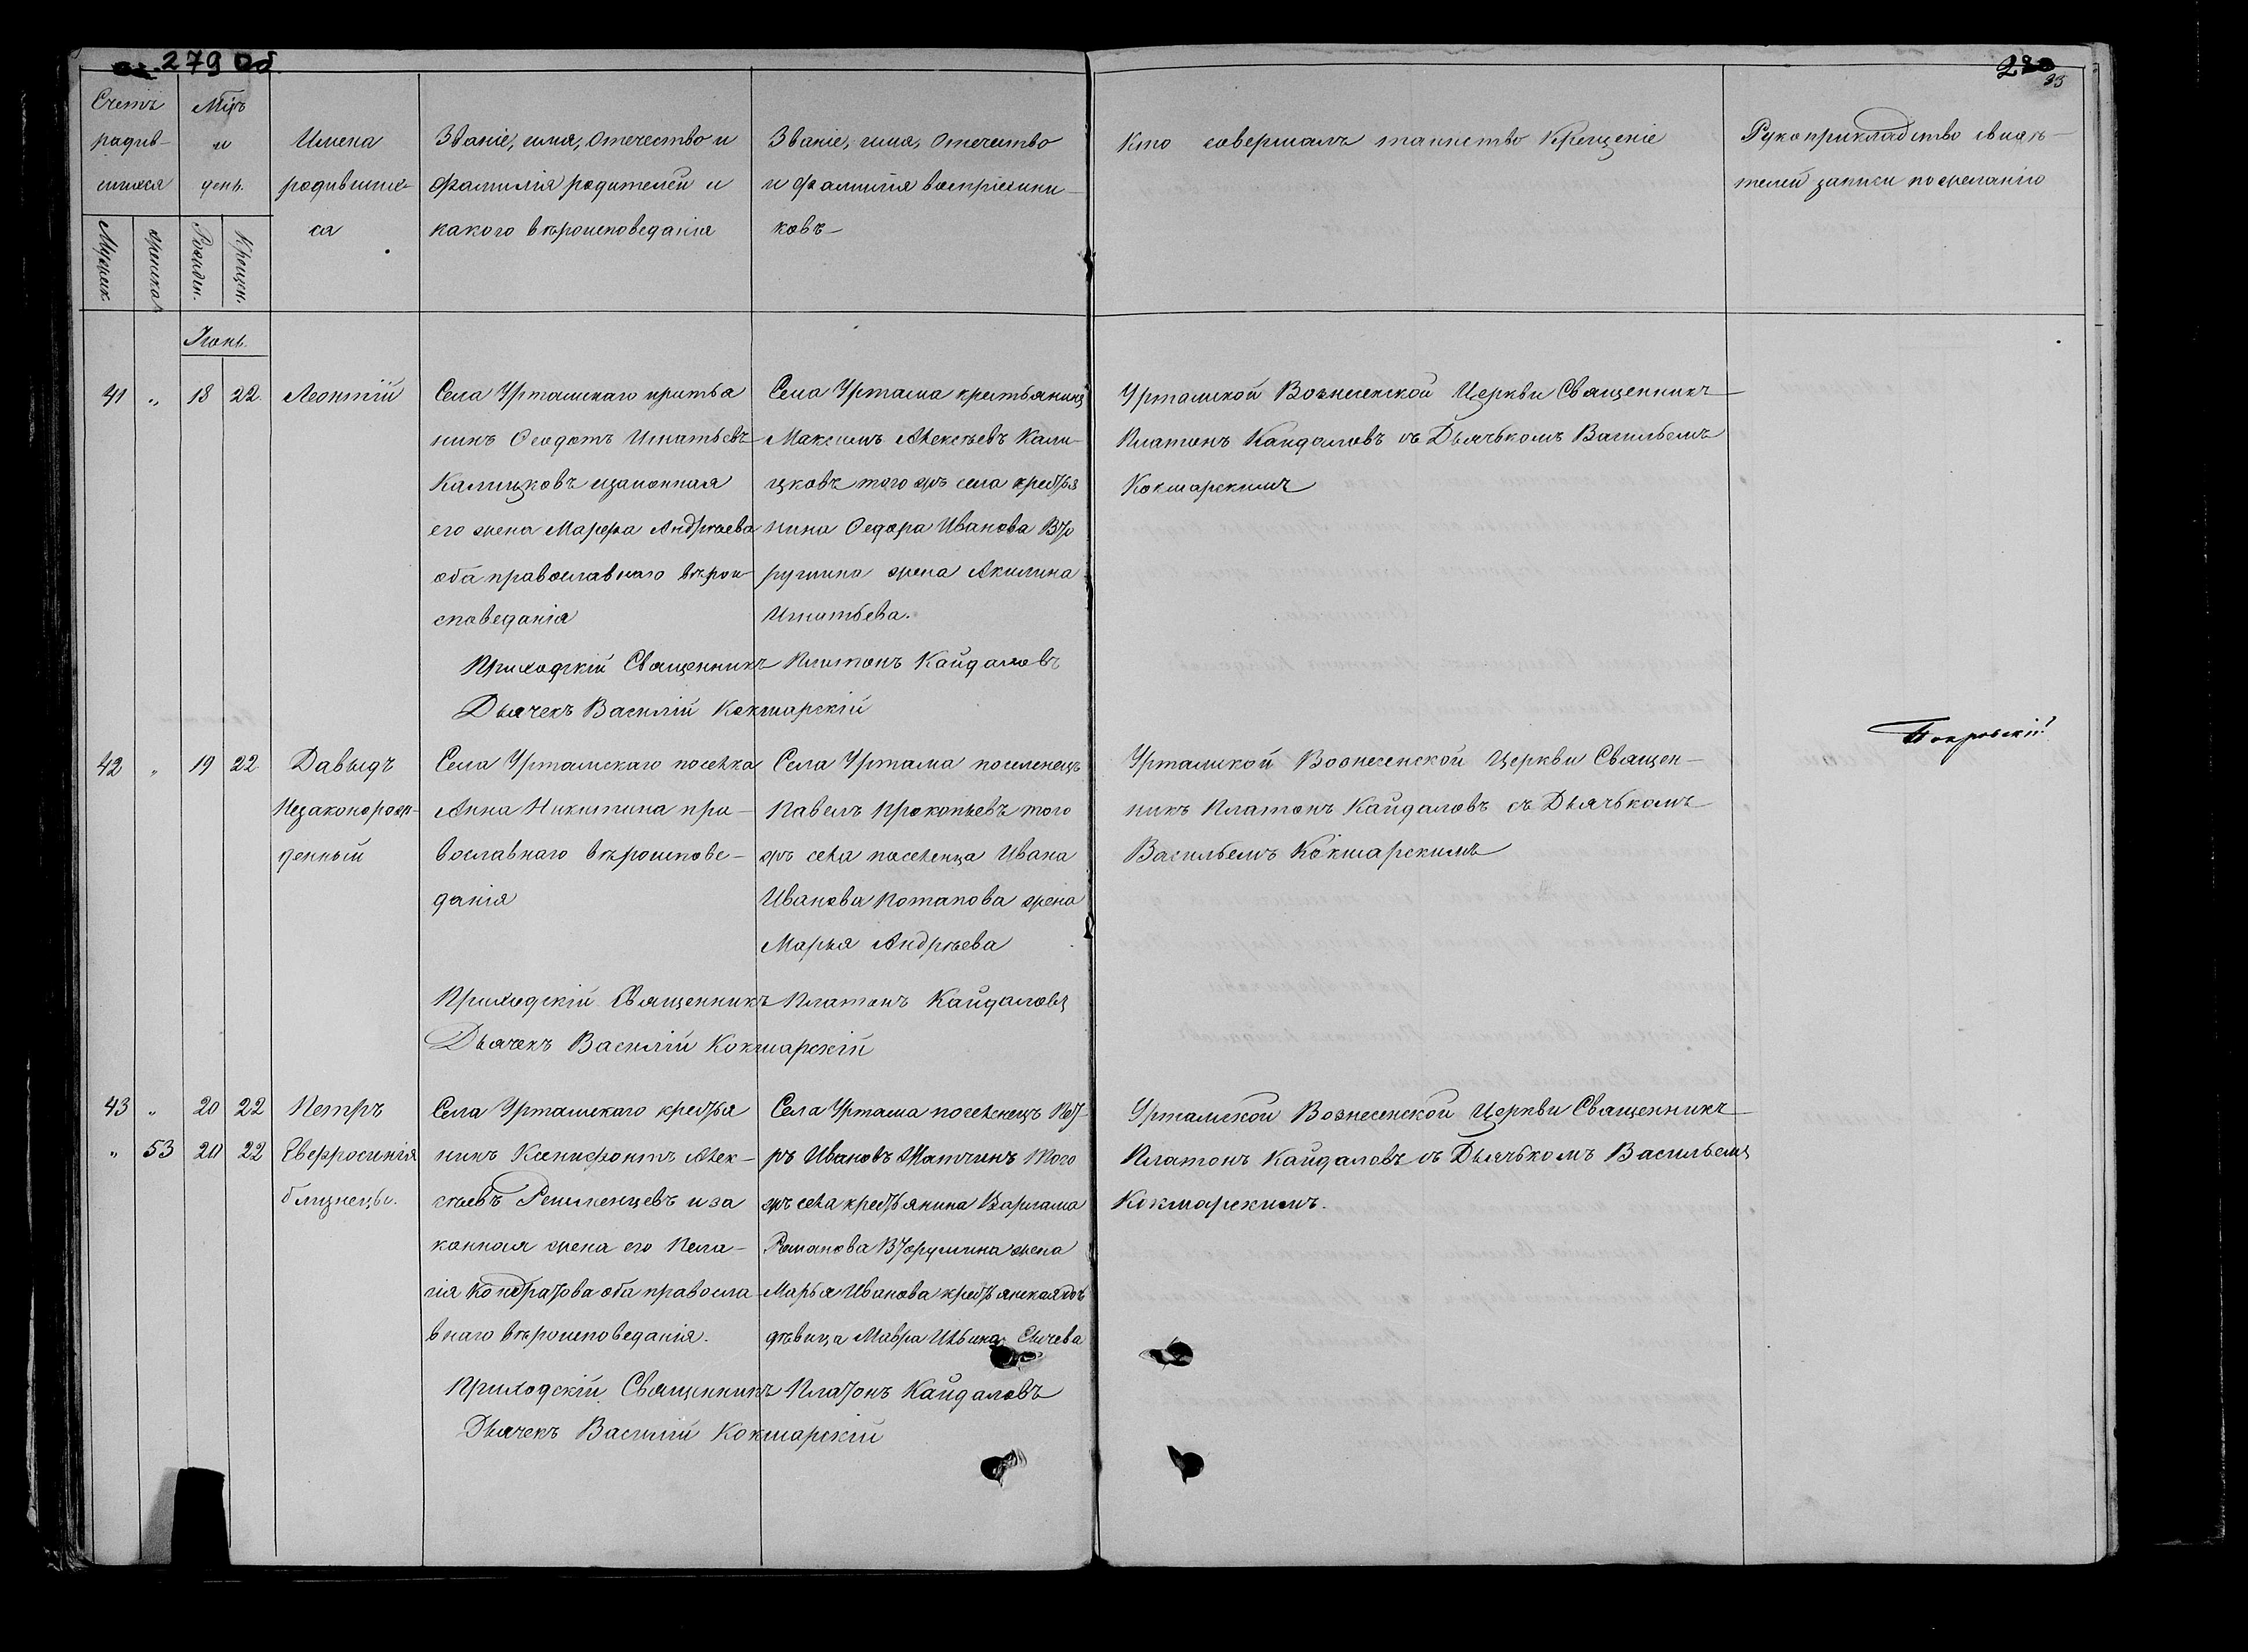 279 Об
280
Счетъ родив-шихся
Мужск.
Женска
Мцъ и день.
Рожден.
Крещен.
Имена родивших-ся
Званіе, имя, отечество и
фамилія родителей и
какого вѣроисповеданія
Званіе, имя, отечество
и фамилія воспріемни-
ковъ
Кто совершалъ таинство Крещеніе
Рукоприкладство свидѣ-
телей записи по желанію
Іюнь.
41 " 18 22 Леонтій
Села Уртамскаго крестья
нинъ Ѳеодотъ Игнатьевъ
Калицковъ изаконная
его жена Марфа Андрѣева
оба православнаго вѣрои-
споведанія
Села Уртама крестьянинъ
Максимъ Алексѣевъ Кали-
цковъ того жъ села крестья
нина Ѳедора Иванова Вто
рушина жена Акилина
Игнатьева.
Уртамской Вознесенской Церкви Священникъ
Платонъ Кайдаловъ съ Дьячькомъ Васильемъ
Кокшарскимъ
Приходскій Священникъ Платонъ Кайдаловъ
Дьячекъ Василій Кокшарскій
Покровскій
42 " 19 22 Давыдъ
Незаконорож-
денный
Села Уртамскаго поселка
Анна Никитина пра-
вославнаго вѣроиспове-
данія
Села Уртама поселенецъ
Павелъ Прокопьевъ того
жъ села поселенца Ивана
Иванова Потапова жена
Марья Андрѣева
Уртамской Вознесенской Церкви Священ-
никъ Платонъ Кайдаловъ съ Дьячькомъ
Васильемъ Кокшарскимъ
Приходскій Священникъ Платонъ Кайдаловъ
Дьячекъ Василій Кокшарскій
43 " 20 22 Петръ
" 53 20 22 Евфросинія
близнецы.
Села Уртамскаго крестья
нинъ Ксенифонтъ Алек-
сѣевъ Решменцевъ и за
конная жена его Пела-
гія Кондратова оба правосла
внаго вѣроисповеданія.
Села Уртама поселенецъ Пет-
ръ Ивановъ Матчинъ того
жъ села крестьянина Варлама
Романова Вторушина жена
Марья Иванова крестьянская дочь
дѣвица Мавра Ильина Сычева
Уртамской Вознесенской Церкви Священникъ
Платонъ Кайдаловъ съ Дьячькомъ Васильемъ
Кокшарскимъ.
Приходскій Священникъ Платонъ Кайдаловъ
Дьячекъ Василій Кокшарскій